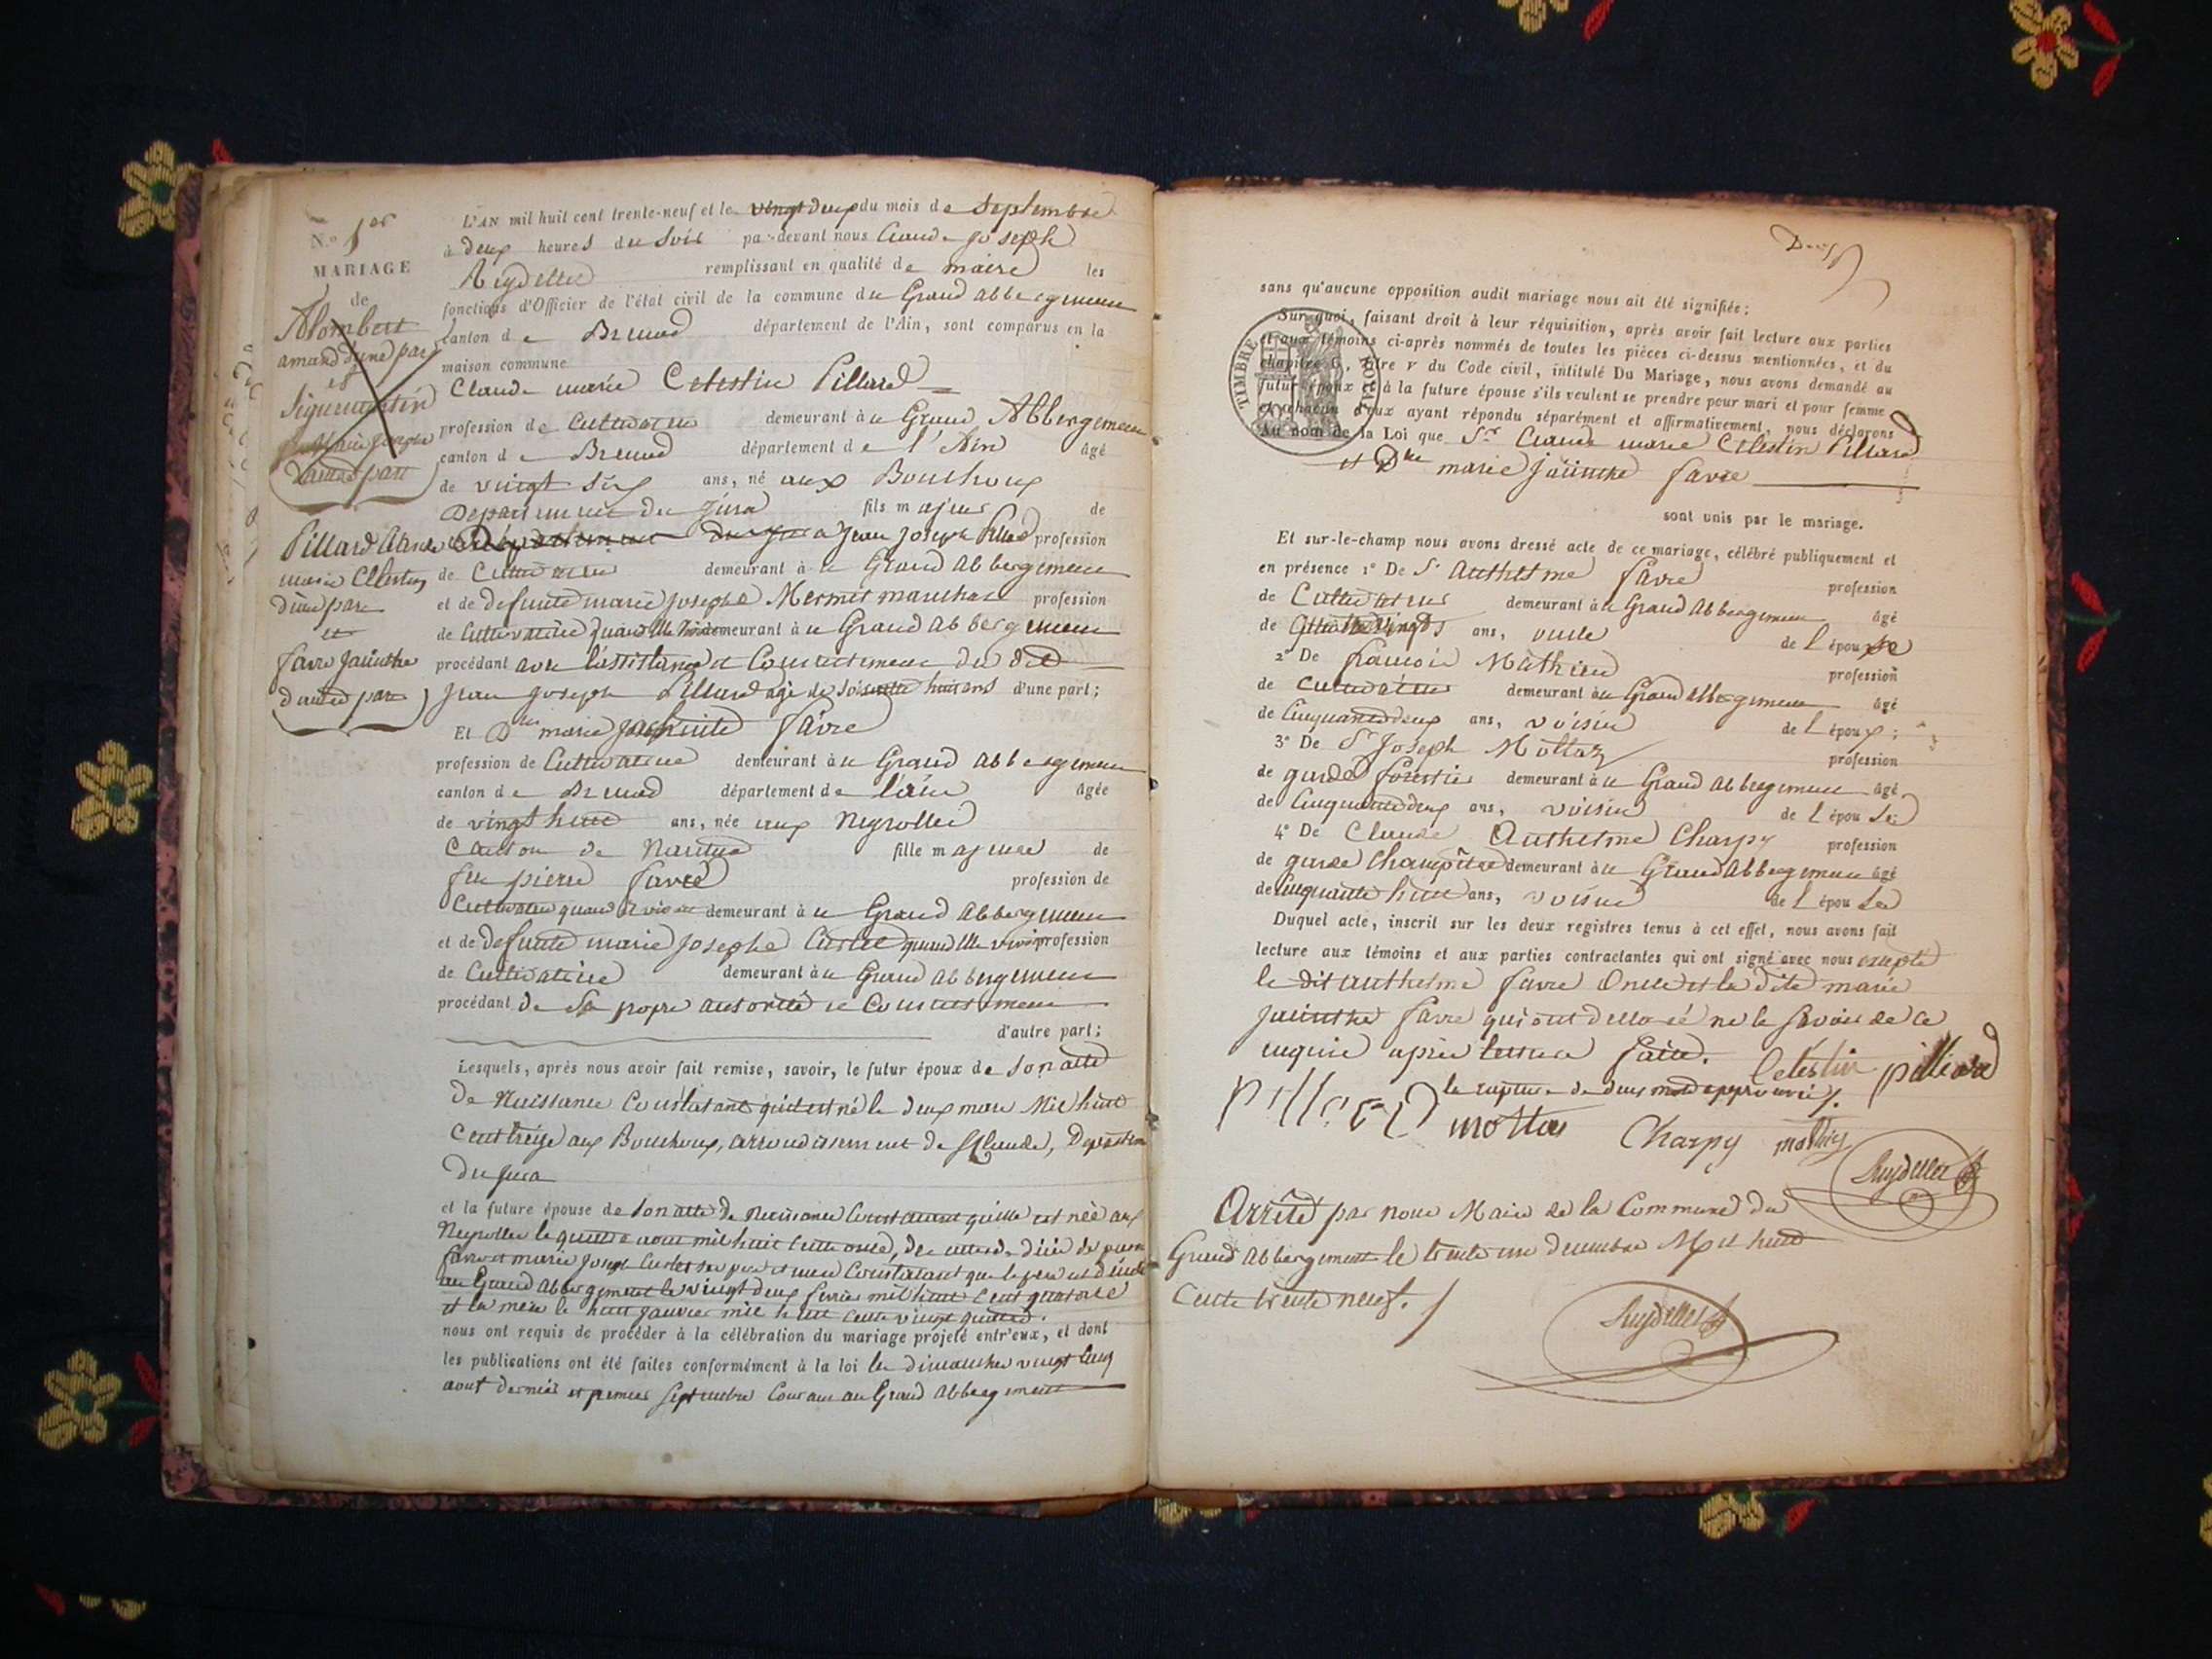 N.º 1er
MARIAGE
de
Alombert
amand d'une part
et
d'autre part
Pillard Claude
marie Célestin
d'une part
et
favre Jacinthe
d'autre part
L'AN mil huit cent trente-neuf et le vingt deux du mois de Septembre
à deux heures du soir par-devant nous Claude joseph
Reydellet remplissant en qualité de maire les
fonctions d'Officier de l'état civil de la commune du Grand abbergement
canton de Brenod département de l'Ain, sont comparus en la
maison commune
Claude marie Celestin Pillard
profession de Cultivateur demeurant à u Grand Abbergement
canton de Brenod département de l'Ain âgé
de vingt six ans, né aux Bouchoux
Departement du Jura fils majeur de
Département du Jura Jean Joseph Pillard profession
de Cultivateur demeurant à u Grand abbergement
et de defunte marie josephe Mermet profession
de Cultivatrice quand elle vivoit demeurant à u Grand abbergement
procédant avec l'assistance et Consentement du dit
Jean joseph Pillard agé de soixante huit ans d'une part;
Et Dlle marie Jacinthe favre
profession de Cultivatrice demeurant à u Grand abbergement
canton de Brenod département de l'ain âgée
de vingt huit ans, née aux Neyrolles
Canton de Nantua fille majeure de
feu pierre favre profession de
Cultivateur quand il vivoit demeurant à u Grand abbergement
et de defunte marie josephe quand elle vivoit profession
de Cultivatrice demeurant à u Grand abbergement
procédant de sa propre autorité et Consentement
d'autre part;
Lesquels, après nous avoir fait remise, savoir, le futur époux de son acte
de Naissance Constatant qu'il est né le deux mars Mil huit
Cent treize aux Bouchoux, arrondissement de St Claude, Departement
du jura
et la future épouse de son acte de Naissance Constatant qu'elle est née aux
Neyrolles le quatre aout mil huit cent onze, des actes de décès de pierre
favre et marie Joseph ses père et mère Constatant que le père est décédé
au Grand abbergement le vingt deux fevrier mil huit cent quatorze
et la mère le huit janvier mil huit cent vingt quatre.
nous ont requis de procéder à la célébration du mariage projeté entr'eux, et dont
les publications ont été faites conformément à la loi les dimanches vingt cinq
aout dernier et premier septembre Courant au Grand abbergement
Deux
sans qu'aucune opposition audit mariage nous ait été signifiée;
Sur quoi, faisant droit à leur réquisition, après avoir fait lecture aux parties
et aux témoins ci-après nommés de toutes les pièces ci-dessus mentionnées, et du
chapitre 6, titre v du Code civil, intitulé Du Mariage, nous avons demandé au
futur époux et à la future épouse s'ils veulent se prendre pour mari et pour femme
et chacun d'eux ayant répondu séparément et affirmativement, nous déclarons
Au nom de la Loi que Sr Claude marie Célestin Pillard
et Dlle marie jacinthe favre
sont unis par le mariage.
TIMBRE ROYAL
Et sur-le-champ nous avons dressé acte de ce mariage, célébré publiquement et
en présence 1º De Sr Anthelme favre profession
de Cultivateur demeurant à u Grand abbergement âgé
de quatre vingts ans, oncle de l'épouse
2º De francois Mathieu profession
de Cultivateur demeurant à u Grand abbergement âgé
de Cinquante deux ans, voisin de l'époux;
3º De Sr Joseph Mottaz profession
de garde forestier demeurant à u Grand abbergement âgé
de Cinquante deux ans, voisin de l'épouse
4º De Claude Anthelme Charpy profession
de garde Champêtre demeurant à u Grand abbergement âgé
de Cinquante huit ans, voisin de l'épouse
Duquel acte, inscrit sur les deux registres tenus à cet effet, nous avons fait
lecture aux témoins et aux parties contractantes qui ont signé avec nous excepté
le dit anthelme favre oncle et la dite marie
jacinthe favre qui ont declaré ne le savoir de ce
enquis après lecture faite. Celestin pilliard
la rapture de deux mots approuvée
Pillard mottas Charpy mathieu
Reydellet
Arrêté par nous Maire de la Commune du
Grand abbergement le trente un decembre Mil huit
Cent trente neuf.
Reydellet